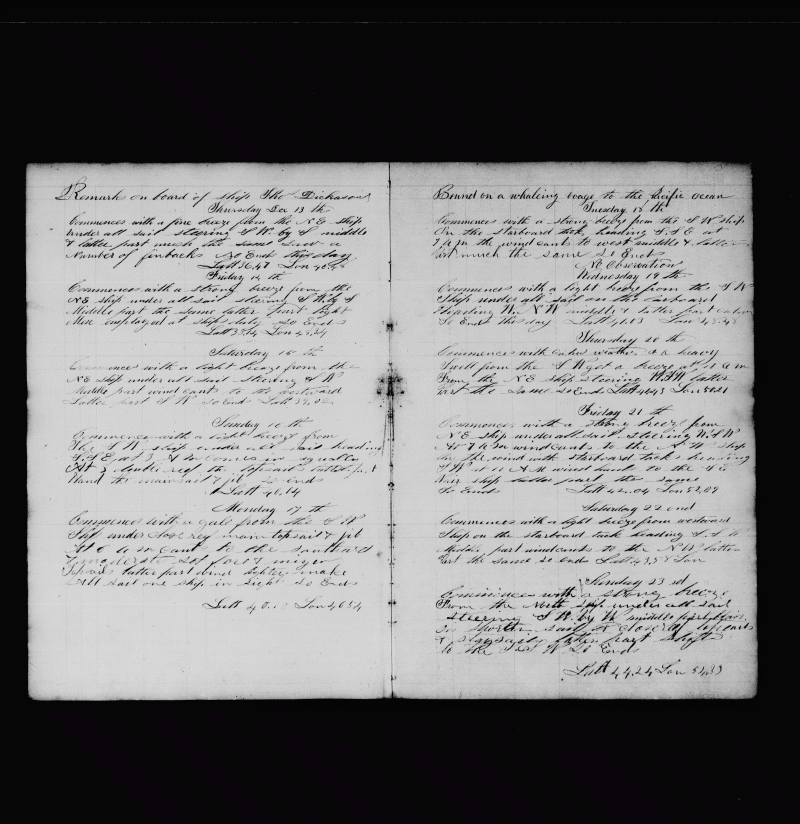 Remark on board of ship Tho Dickason
Thursday Dec 13 th
Commences with a fine breeze from the N E ship
under all sail steering S W. by S middle
& latter part much the same Saw a
Number of finbacks So Ends this day
Latt 36,47 Lon
Friday 14 th
Commences with a strong breeze from the
N E ship under all sail steering S W by S
Middle part the same latter part light
Men employed at ships duty So Ends
Latt Lon
Saturday 15 th
Commences with a light breeze from the
N E ship under all sail steering S W
Middle part wind cants to the westward
Latter part S W So Ends Latt 39,
Sunday 16 th
Commences with a light breeze from
The S W ship under all sail heading
S. S E at 3 comes in squally
At double reef the topsails latter part
the main sail & jib So ends
Latt 40,14
Monday 17 th
Commences with a gale from the S W
Ship under close reef main topsail & jib
At 6 a m cant to the southard
& moderate set fore & mizen
Topsails latter part wind lighter make
All sail one ship in sight So Ends
Latt 40 Lon 46,54
Bound on a whaleing voage to the Pacific ocean
Tuesday 18 th
Commences with a strong breeze from the S W ship
On the starboard tack, heading S. S E at
7 a m the wind cants to west middle & latter
Part much the same So Ends
No Observation
Wednesday 19 th
Commences with a light breeze from the S W
Ship under all sail on the larboard
Heading W. N W middle & latter part calm
So Ends this day Latt 41,13 Lon
Thursday 20 th
Commences with calm weather & a heavy
Swell from the S W got a breeze at a m
From the N E ship steering W.S.W latter
Part the Same So Ends Latt Lon
Friday 21 th
Commences with a strong breeze from
N E ship under all sail, steering W. S W
At 7 a m wind cants to the N W ship
wind with starboard tacks heading
S W at 10 A M wind to the S E
ship latter part the same
So Ends Latt 42,04 Lon 52,09
Saturday 22 end
Commences with a light breeze from westward
Ship on the starboard tack heading S. S W
Middle part wind cants to the N W latter
Part the same So ends Latt Lon
Sunday 23 rd
Commences with a strong breeze
From the North Ship under all sail
Steering S W. by W middle part
sail & close reef topsails
& latter part shifts
to the S W So Ends
Latt 44,24 Lon